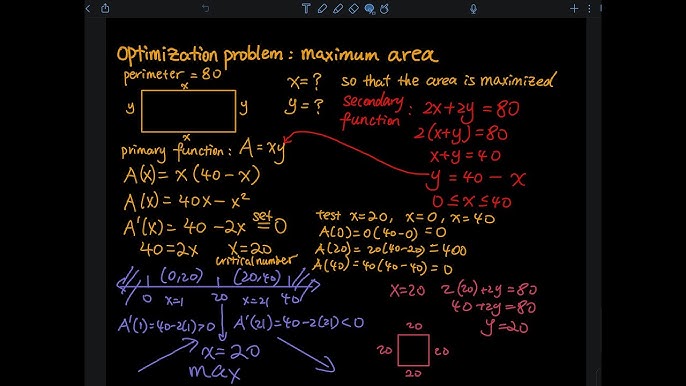 Optimization problem: maximum area
perimeter = 80
x
y
y
x
x = ?
y = ?
so that the area is maximized
secondary function: 2x+2y = 80
2(x+y) = 80
x+y = 40
y = 40 - x
0 ≤ x ≤ 40
primary function: A = xy
A(x) = x(40-x)
A(x) = 40x - x²
A'(x) = 40 - 2x set = 0
40 = 2x x = 20
critical number
test x=20, x=0, x=40
A(0) = 0(40-0) = 0
A(20) = 20(40-20) = 400
A(40) = 40(40-40) = 0
(0,20) (20,40)
0 x=1 20 x=21 40
A'(1) = 40-2(1) > 0 A'(21) = 40-2(21) < 0
x = 20
max
x = 20 2(20)+2y = 80
40+2y = 80
y = 20
20
20
20
20